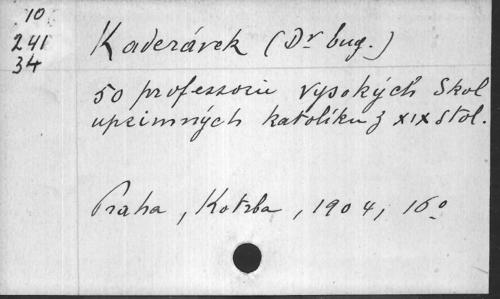 10
241
34
Kaderávek (Dr bug.)
50 professorů vysokých škol
upřímných katolíku z XIX stol.
Praha, Kotrba, 1904, 16o